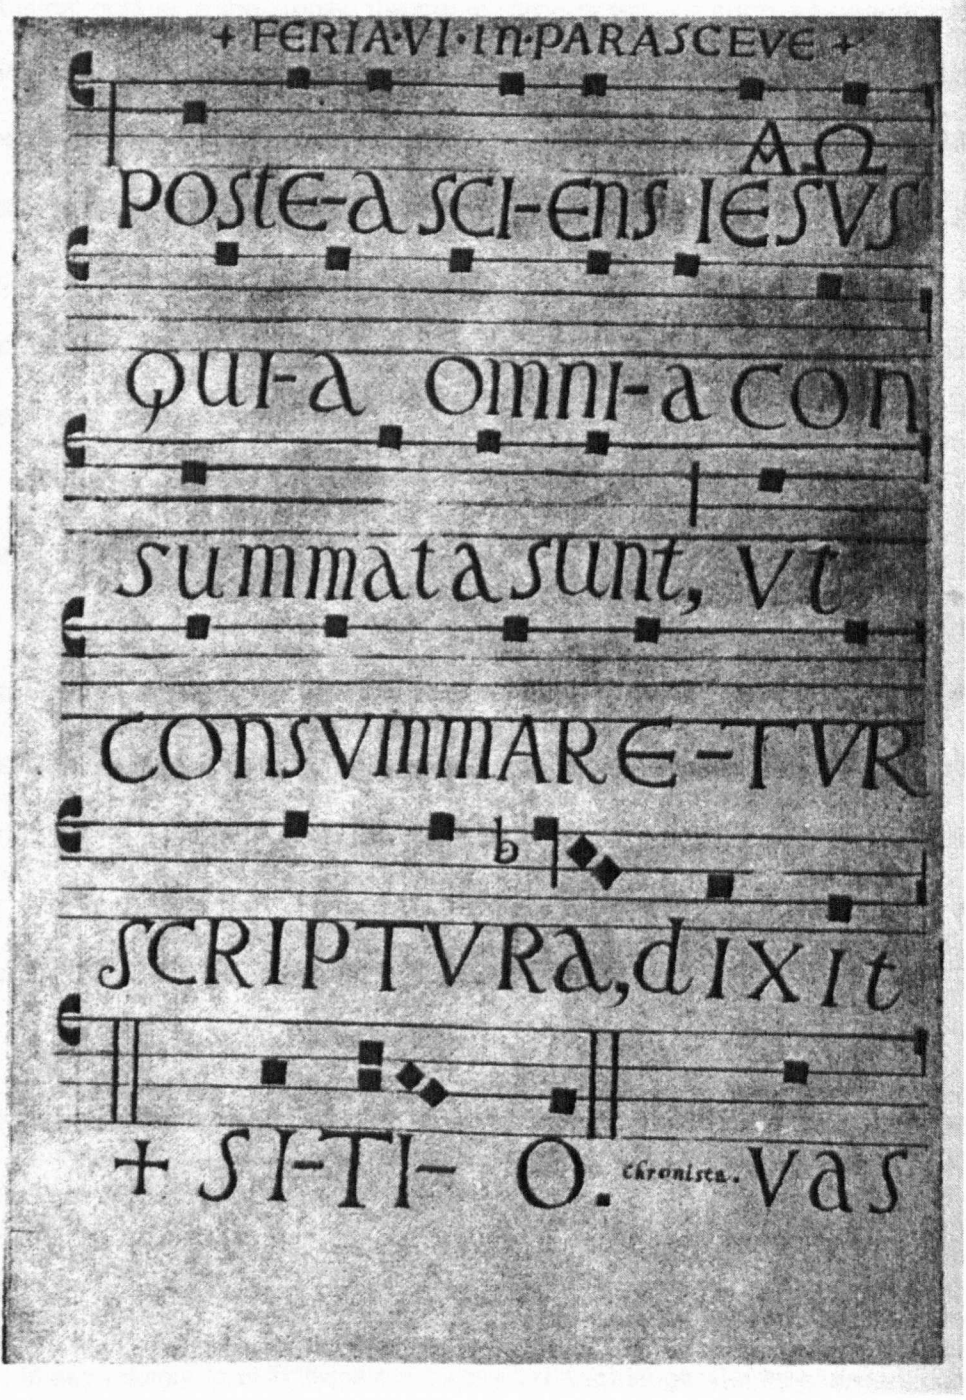 + FERIA·VI·In·PARASCEVE +
AΩ
POStE-a SCI-EnS IESVS
QUI-a OmnI-a COn
summata sunt, Vt
COnSVmmARE-TVR
SCRIPTVRa, dIXIt
+ SI-TI- O. chronista. VaS